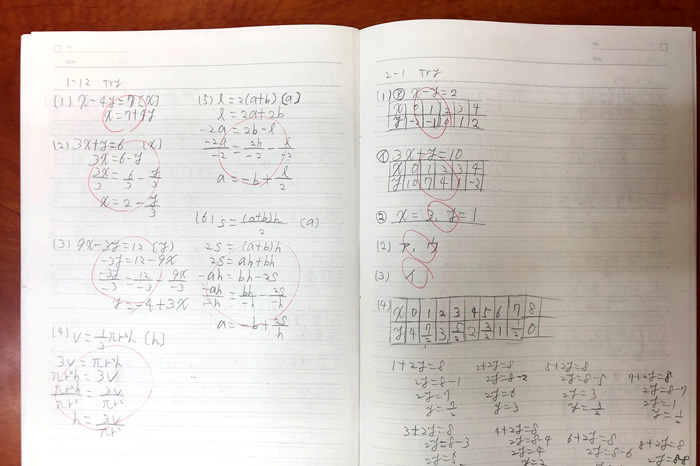 1-12 Try
(1) x-4y=7 [x]
x=7+4y
(2) 3x+y=6 [x]
3x=6-y
3x/3=6/3-y/3
x=2-y/3
(3) 9x-3y=12 [y]
-3y=12-9x
-3y/-3=12/-3-9x/-3
y=-4+3x
(4) V=1/3πr²h [h]
3V=πr²h
πr²h=3V
πr²h/πr²=3V/πr²
h=3V/πr²
(5) l=2(a+b) [a]
l=2a+2b
-2a=2b-l
-2a/-2=2b/-2-l/-2
a=-b+l/2
(6) S=(a+b)h/2 [a]
2S=(a+b)h
2S=ah+bh
-ah=bh-2S
a=-b+2S/h
2-1 Try
(1) ア x-y=2
x 0 1 2 3 4
y -2 -1 0 1 2
イ 3x+y=10
x 0 1 2 3 4
y 10 7 4 1 -2
② x=3, y=1
(2)
(3) イ
(4)
x 0 1 2 3 4 5 6 7 8
y 4 7/2 3 5/2 2 3/2 1 1/2 0
1+2y=8
2y=8-1
2y=7
y=7/2
2+2y=8
2y=8-2
2y=6
y=3
5+2y=8
2y=8-5
2y=3
y=3/2
7+2y=8
2y=8-7
2y=1
y=1/2
3+2y=8
2y=8-3
4+2y=8
2y=8-4
2y=4
6+2y=8
2y=8-6
8+2y=8
2y=8-8